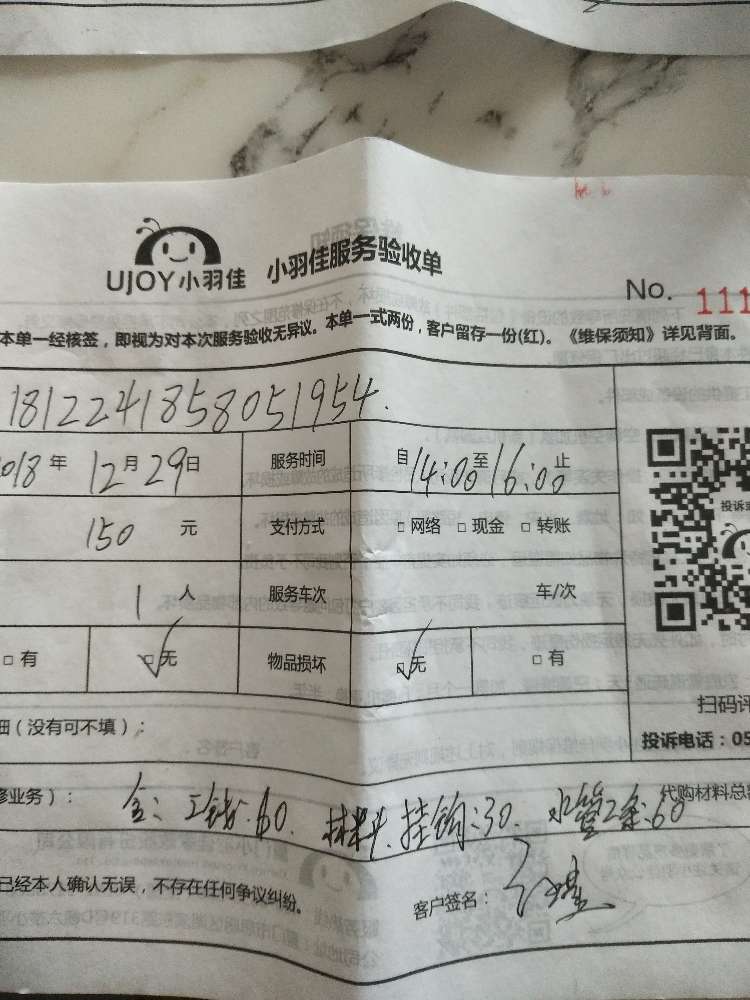 UJOY小羽佳 小羽佳服务验收单
No. 111
本单一经核签，即视为对本次服务验收无异议。本单一式两份，客户留存一份(红)。《维保须知》详见背面。
1812241858051954
2018 年 12 月 29 日 服务时间 自 14:00 至 16:00 止
150 元 支付方式 □ 网络 □ 现金 □ 转账
1 人 服务车次 车/次
□ 有 ☑ 无 物品损坏 ☑ 无 □ 有
投诉
扫码评
细（没有可不填）：
投诉电话：05
修业务）： 工钱:60. 挂钩:30. 水管2条:60 代购材料总
已经本人确认无误，不存在任何争议纠纷。 客户签名：